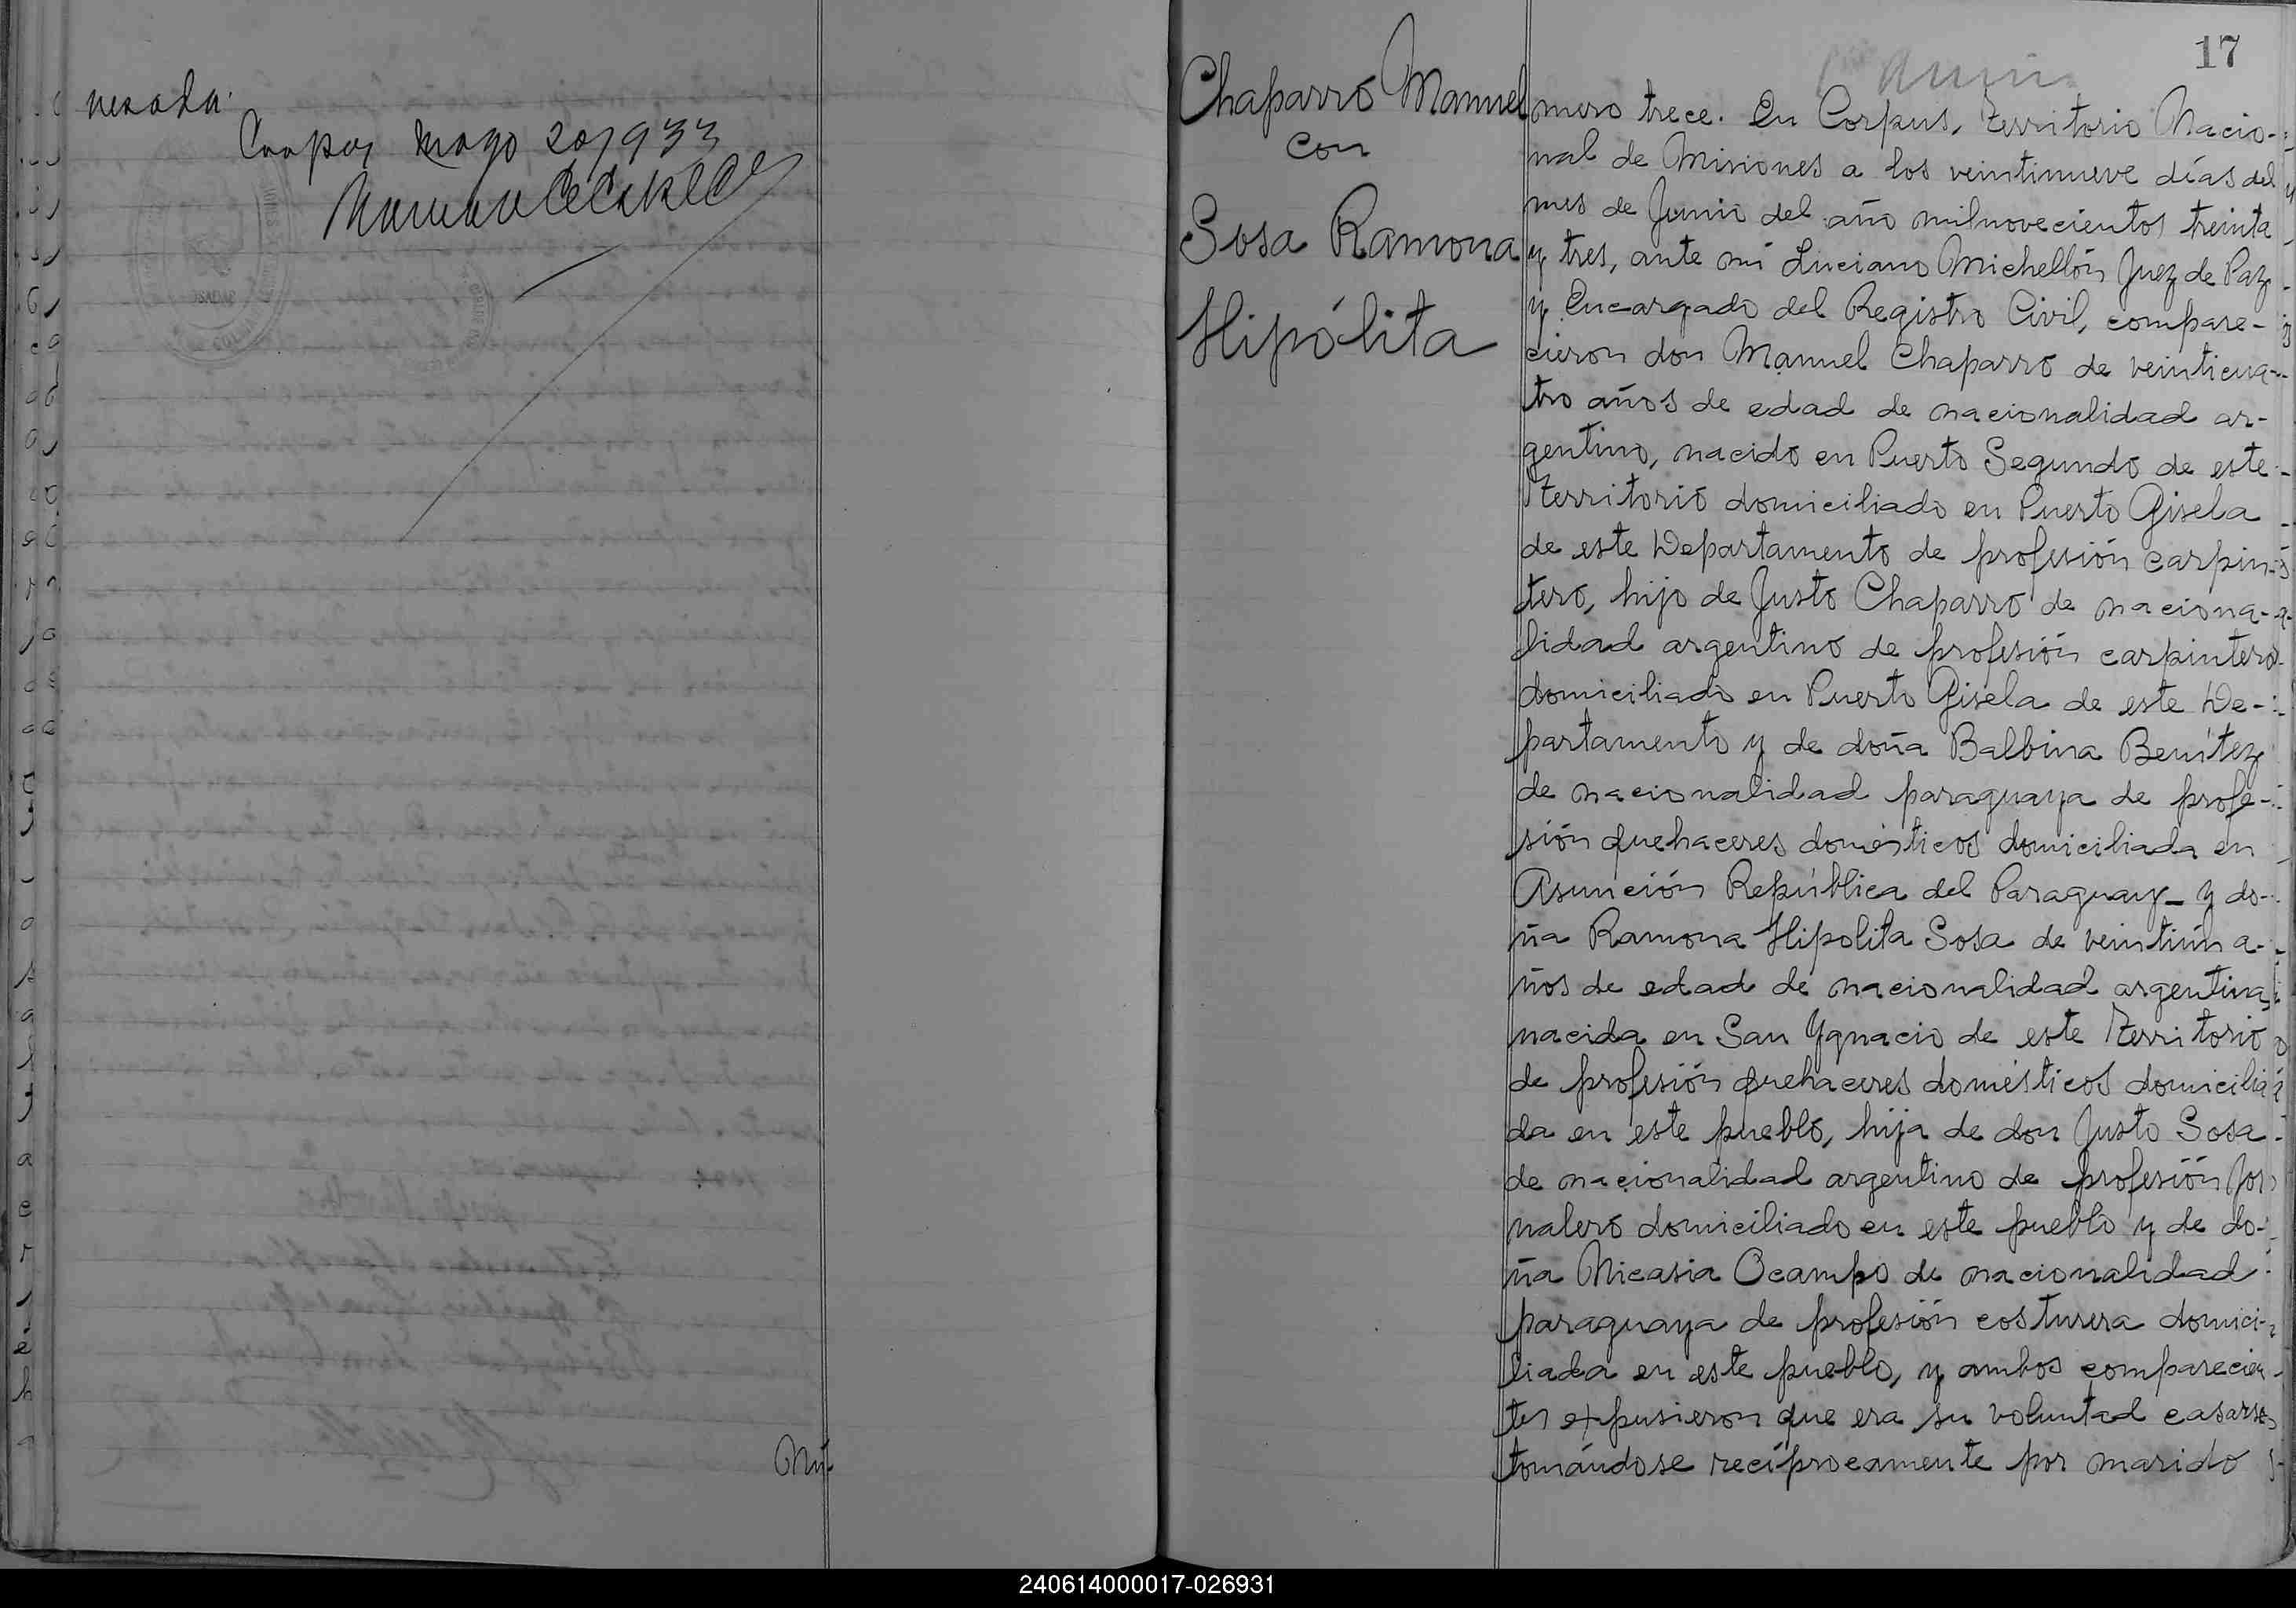 Corpus Mayo 20/933
Nú-
17
Chaparro Manuel
con
Sosa Ramona
Hipólita
mero trece. En Corpus, Territorio Nacio-
nal de Misiones a los veintinueve días del
mes de Junio del año milnovecientos treinta
y tres, ante mí Luciano Michellón Juez de Paz
y Encargado del Registro Civil, compare-
cieron don Manuel Chaparro de veinticua-
tro años de edad de nacionalidad ar-
gentino, nacido en Puerto Segundo de este
Territorio domiciliado en Puerto Gisela
de este Departamento de profesión carpin-
tero, hijo de Justo Chaparro de naciona-
lidad argentino de profesión carpintero
domiciliado en Puerto Gisela de este De-
partamento y de doña Balbina Benítez
de nacionalidad paraguaya de profe-
sión quehaceres domésticos domiciliada en
Asunción República del Paraguay_ y do-
ña Ramona Hipolita Sosa de veintiún a-
ños de edad de nacionalidad argentina,
nacida en San Ygnacio de este Territorio
de profesión quehaceres domésticos domicilia
da en este pueblo, hija de don Justo Sosa
de nacionalidad argentino de profesión Jor
nalero domiciliado en este pueblo y de do-
ña Nicasia Ocampo de nacionalidad
paraguaya de profesión costurera domici-
liada en este pueblo, y ambos comparecien
tes expusieron que era su voluntad casarse
tomándose recíprocamente por marido
240614000017-026931